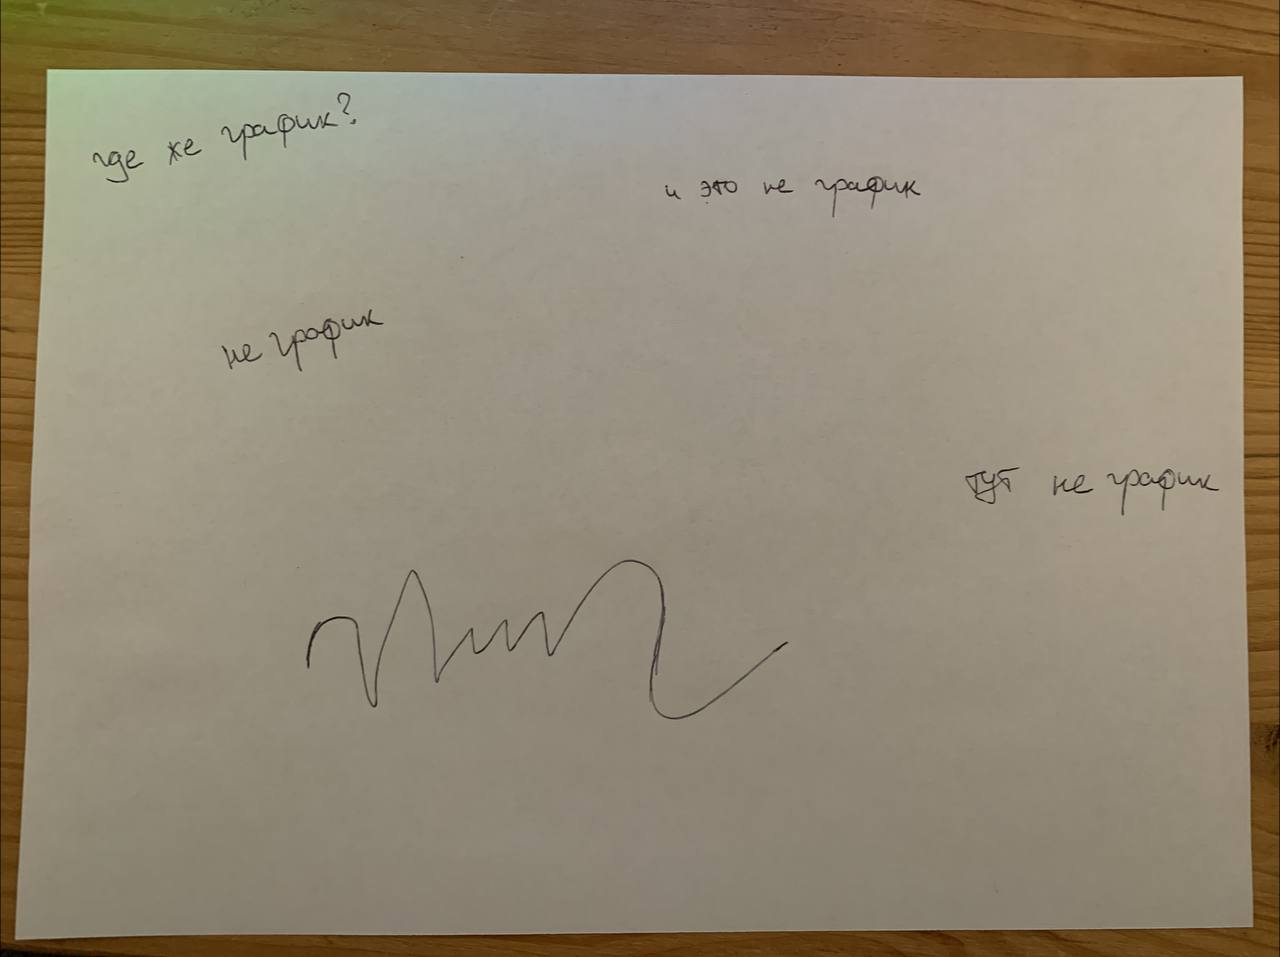 где же график?
и это не график
не график
тут не график